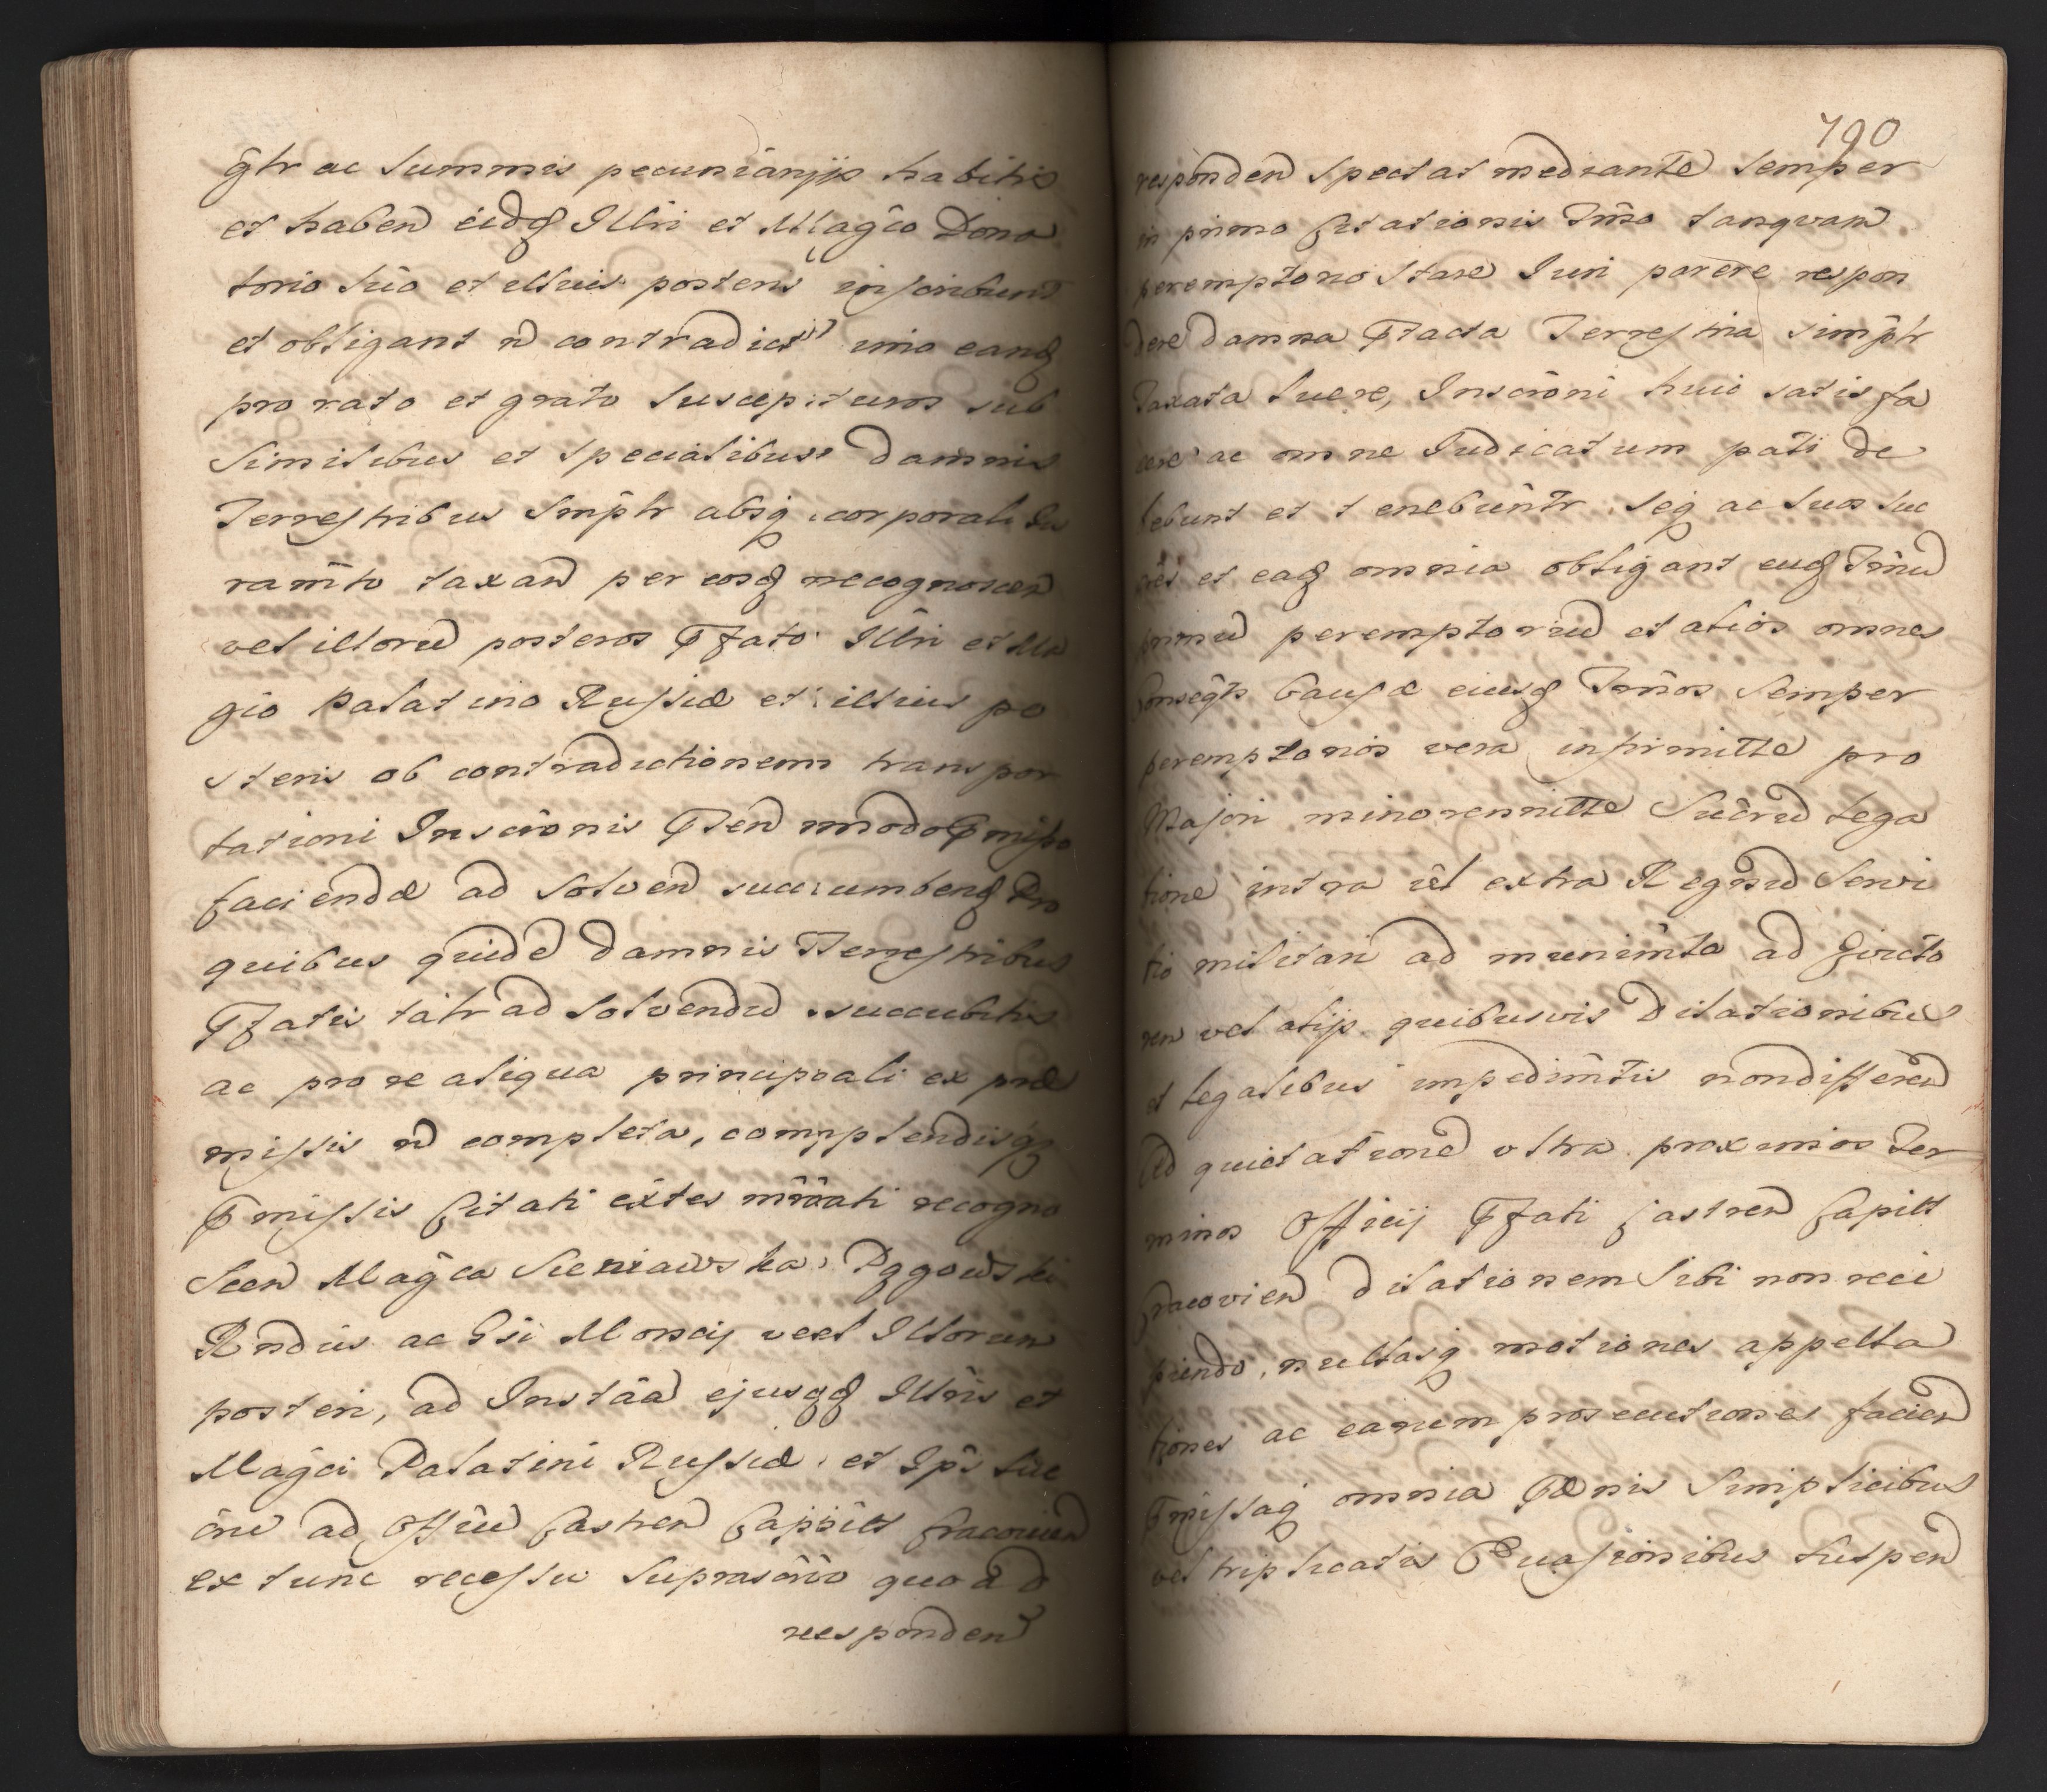 gtr ac summis pecuniarijs habitis
et haben eidq Illri et Magco Dona
torio suo et illius posteris inscribunt
et obligant n contradict imo eanq
pro rato et grato suscepituros sub
similibus et specialibus damnis
Terrestribus smplr absq corporali Ju
ramto taxan per eosq recognoscen
vel illorū posteros Pfato Illri et Ma
gco Palatino Russiæ et illius po
steris ob contradictionem transpor
tationi Inscronis Pten modo Pmisso
faciendæ ad solven succumbenq Pro
quibus quide damnis Terrestribus
Pfatis talr ad solvendū succubitis
ac pro re aliqua principali ex præ
missis n completa, complendisq
Pmissis Citati extes mrati recogno
Scen Magca Sieniawska, Pggowski
Rndus ac Gsi Morscij veel Illorum
posteri, ad Instaa ejusqq Illris et
Magci Palatini Russiæ et Ips suc
cne ad Offiū Castren Cappits Cracovien
ex tunc recessu suprascrio quo ad
responden
790
responden spectat mediante semper
in primo Citationis Tmo tanqvam
peremptorio Stare Juri parere respon
dere damna Ptacta Terrestria simplr
Taxata luere, Inscroni huic satisfa
cere ac omne Judicatum pati de
bebunt et tenebuntr seq ac suos suc
cres et eaq omnia obligant euq Tmū
primū peremptoriū et alios omnes
Conseqts Causæ eiusq Tmos Semper
peremptorios vera infirmitte pro
Majori minorennitte Sucrū lega
tione intra vel extra Regnū Servi
tio militari ad munimta ad Evicto
ren vel alijs quibusvis Dilationibus
et legalibus impedimtis non differen
Ad quietationē vltra proximos Ter
minos Officij Pfati Castren Capitt
Cracovien dilationem sibi non reci
piendo, nullasq motiones appella
tiones ac earum prosecutiones facien
Pmissaq omnia Pænis Simplicibus
vel triplicatis Evasionibus suspen